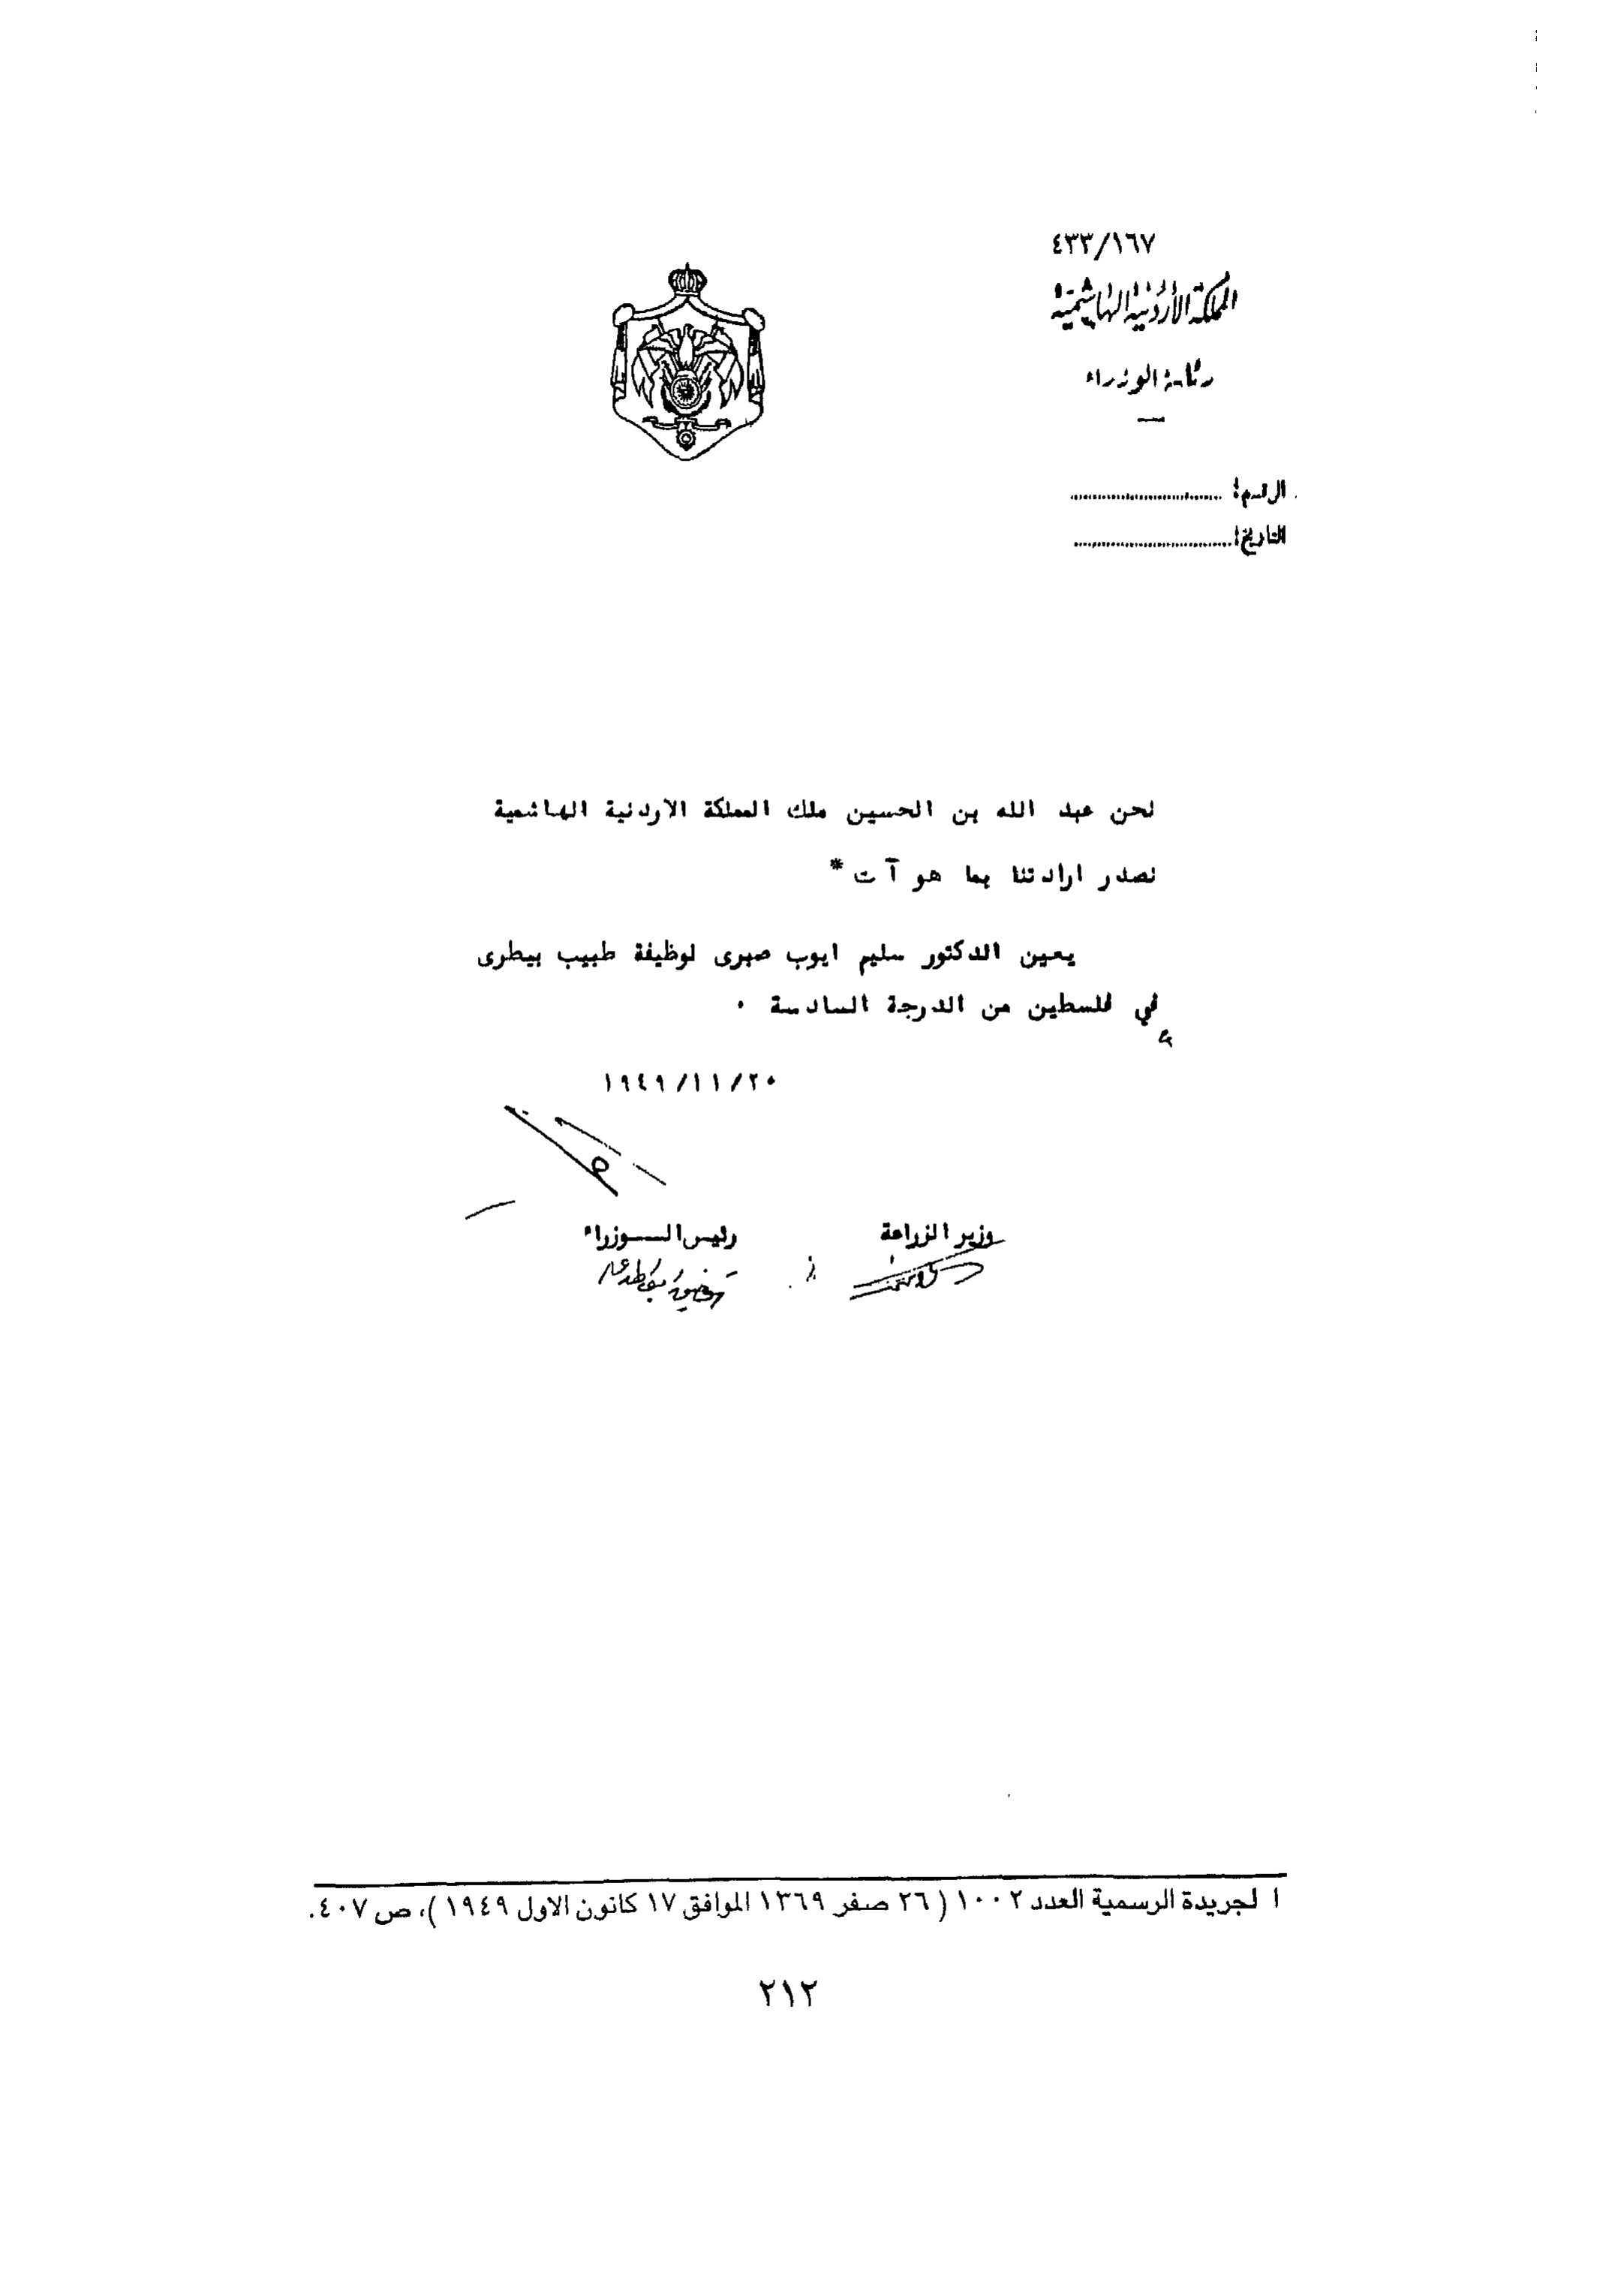 ٤٣٣/١٦٧
المملكة الأردنية الهاشمية
رئاسة الوزراء
الرقم: ........................
التاريخ: ........................
نحن عبد الله بن الحسين ملك المملكة الاردنية الهاشمية
نصدر ارادتنا بما هو آت *
يعين الدكتور سليم ايوب صبرى لوظيفة طبيب بيطرى
في فلسطين من الدرجة السادسة ٠
١٩٤٩/١١/٢٠
وزير الزراعة رئيس الــوزراء
توفيق
ا لجريدة الرسمية العدد ١٠٠٢ ( ٢٦ صفر ١٣٦٩ الموافق ١٧ كانون الاول ١٩٤٩ )، ص ٤٠٧.
٢١٢